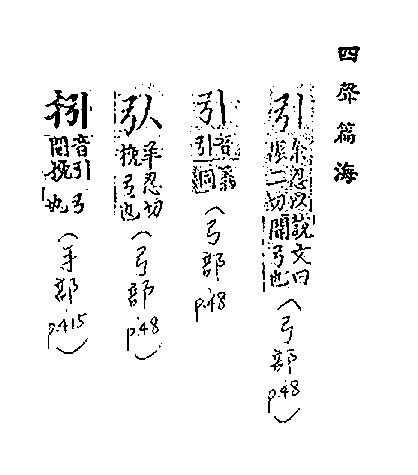 四聲篇海
引 余忍以振二切說文曰開弓也（弓部 p.48）
引 音引義同（弓部 p.48
羊忍切挽弓也（弓部 p.48）
音引開挽弓也（手部 p.415）